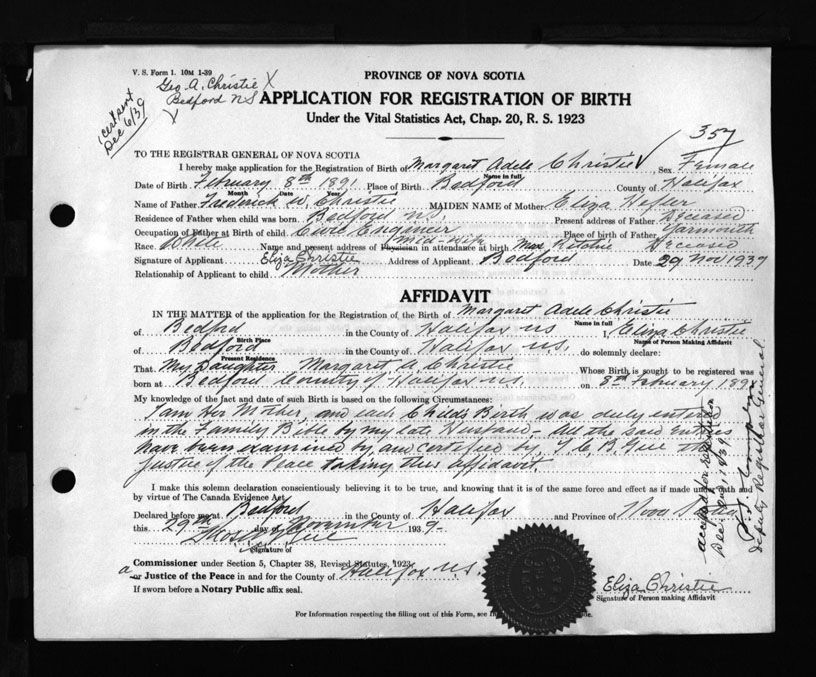 V. S. Form 1. 10M 1-39
Geo. A. Christie X
Bedford NS
cert sent
Dec 6/39
PROVINCE OF NOVA SCOTIA
APPLICATION FOR REGISTRATION OF BIRTH
Under the Vital Statistics Act, Chap. 20, R. S. 1923
357
TO THE REGISTRAR GENERAL OF NOVA SCOTIA
I hereby make application for the Registration of Birth of Margaret Adele Christie Sex Female
Name in full
Date of Birth February 8th 1891 Place of Birth Bedford County of Halifax
Month Date Year
Name of Father Frederick W. Christie MAIDEN NAME of Mother Eliza Hefler
Residence of Father when child was born Bedford N.S. Present address of Father Deceased
Occupation of Father at Birth of child Civic Engineer Place of birth of Father Yarmouth
Race White Name and present address of Physician mid-wife in attendance at birth Mrs Ritchie Deceased
Signature of Applicant Eliza Christie Address of Applicant Bedford Date 29 Nov 1939
Relationship of Applicant to child Mother
AFFIDAVIT
IN THE MATTER of the application for Registration of the Birth of Margaret Adele Christie
Name in full
of Bedford in the County of Halifax NS I, Eliza Christie
Birth Place Name of Person Making Affidavit
of Bedford in the County of Halifax N.S. do solemnly declare:
Present Residence
That My Daughter Margaret A Christie Whose Birth is sought to be registered was
born at Bedford County of Halifax N.S. on 8th February 1891
My knowledge of the fact and date of such Birth is based on the following Circumstances:
I am Her Mother, and each Child's Birth was duly entered
in the Family Bible by my late Husband - All the said entries
have been examined by, and certified by, the
Justice of the Peace taking this affidavit.
I make this solemn declaration conscientiously believing it to be true, and knowing that it is of the same force and effect as if made under oath and
by virtue of The Canada Evidence Act.
Declared before me at Bedford in the County of Halifax and Province of Nova Scotia
this 29th day of November 1939
Signature of
a Commissioner under Section 5, Chapter 38, Revised Statutes, 1923
or Justice of the Peace in and for the County of Halifax N.S.
If sworn before a Notary Public affix seal.
Eliza Christie
Signature of Person making Affidavit
For Information respecting the filling out of this Form, see
accepted for registration
Deputy Registrar General